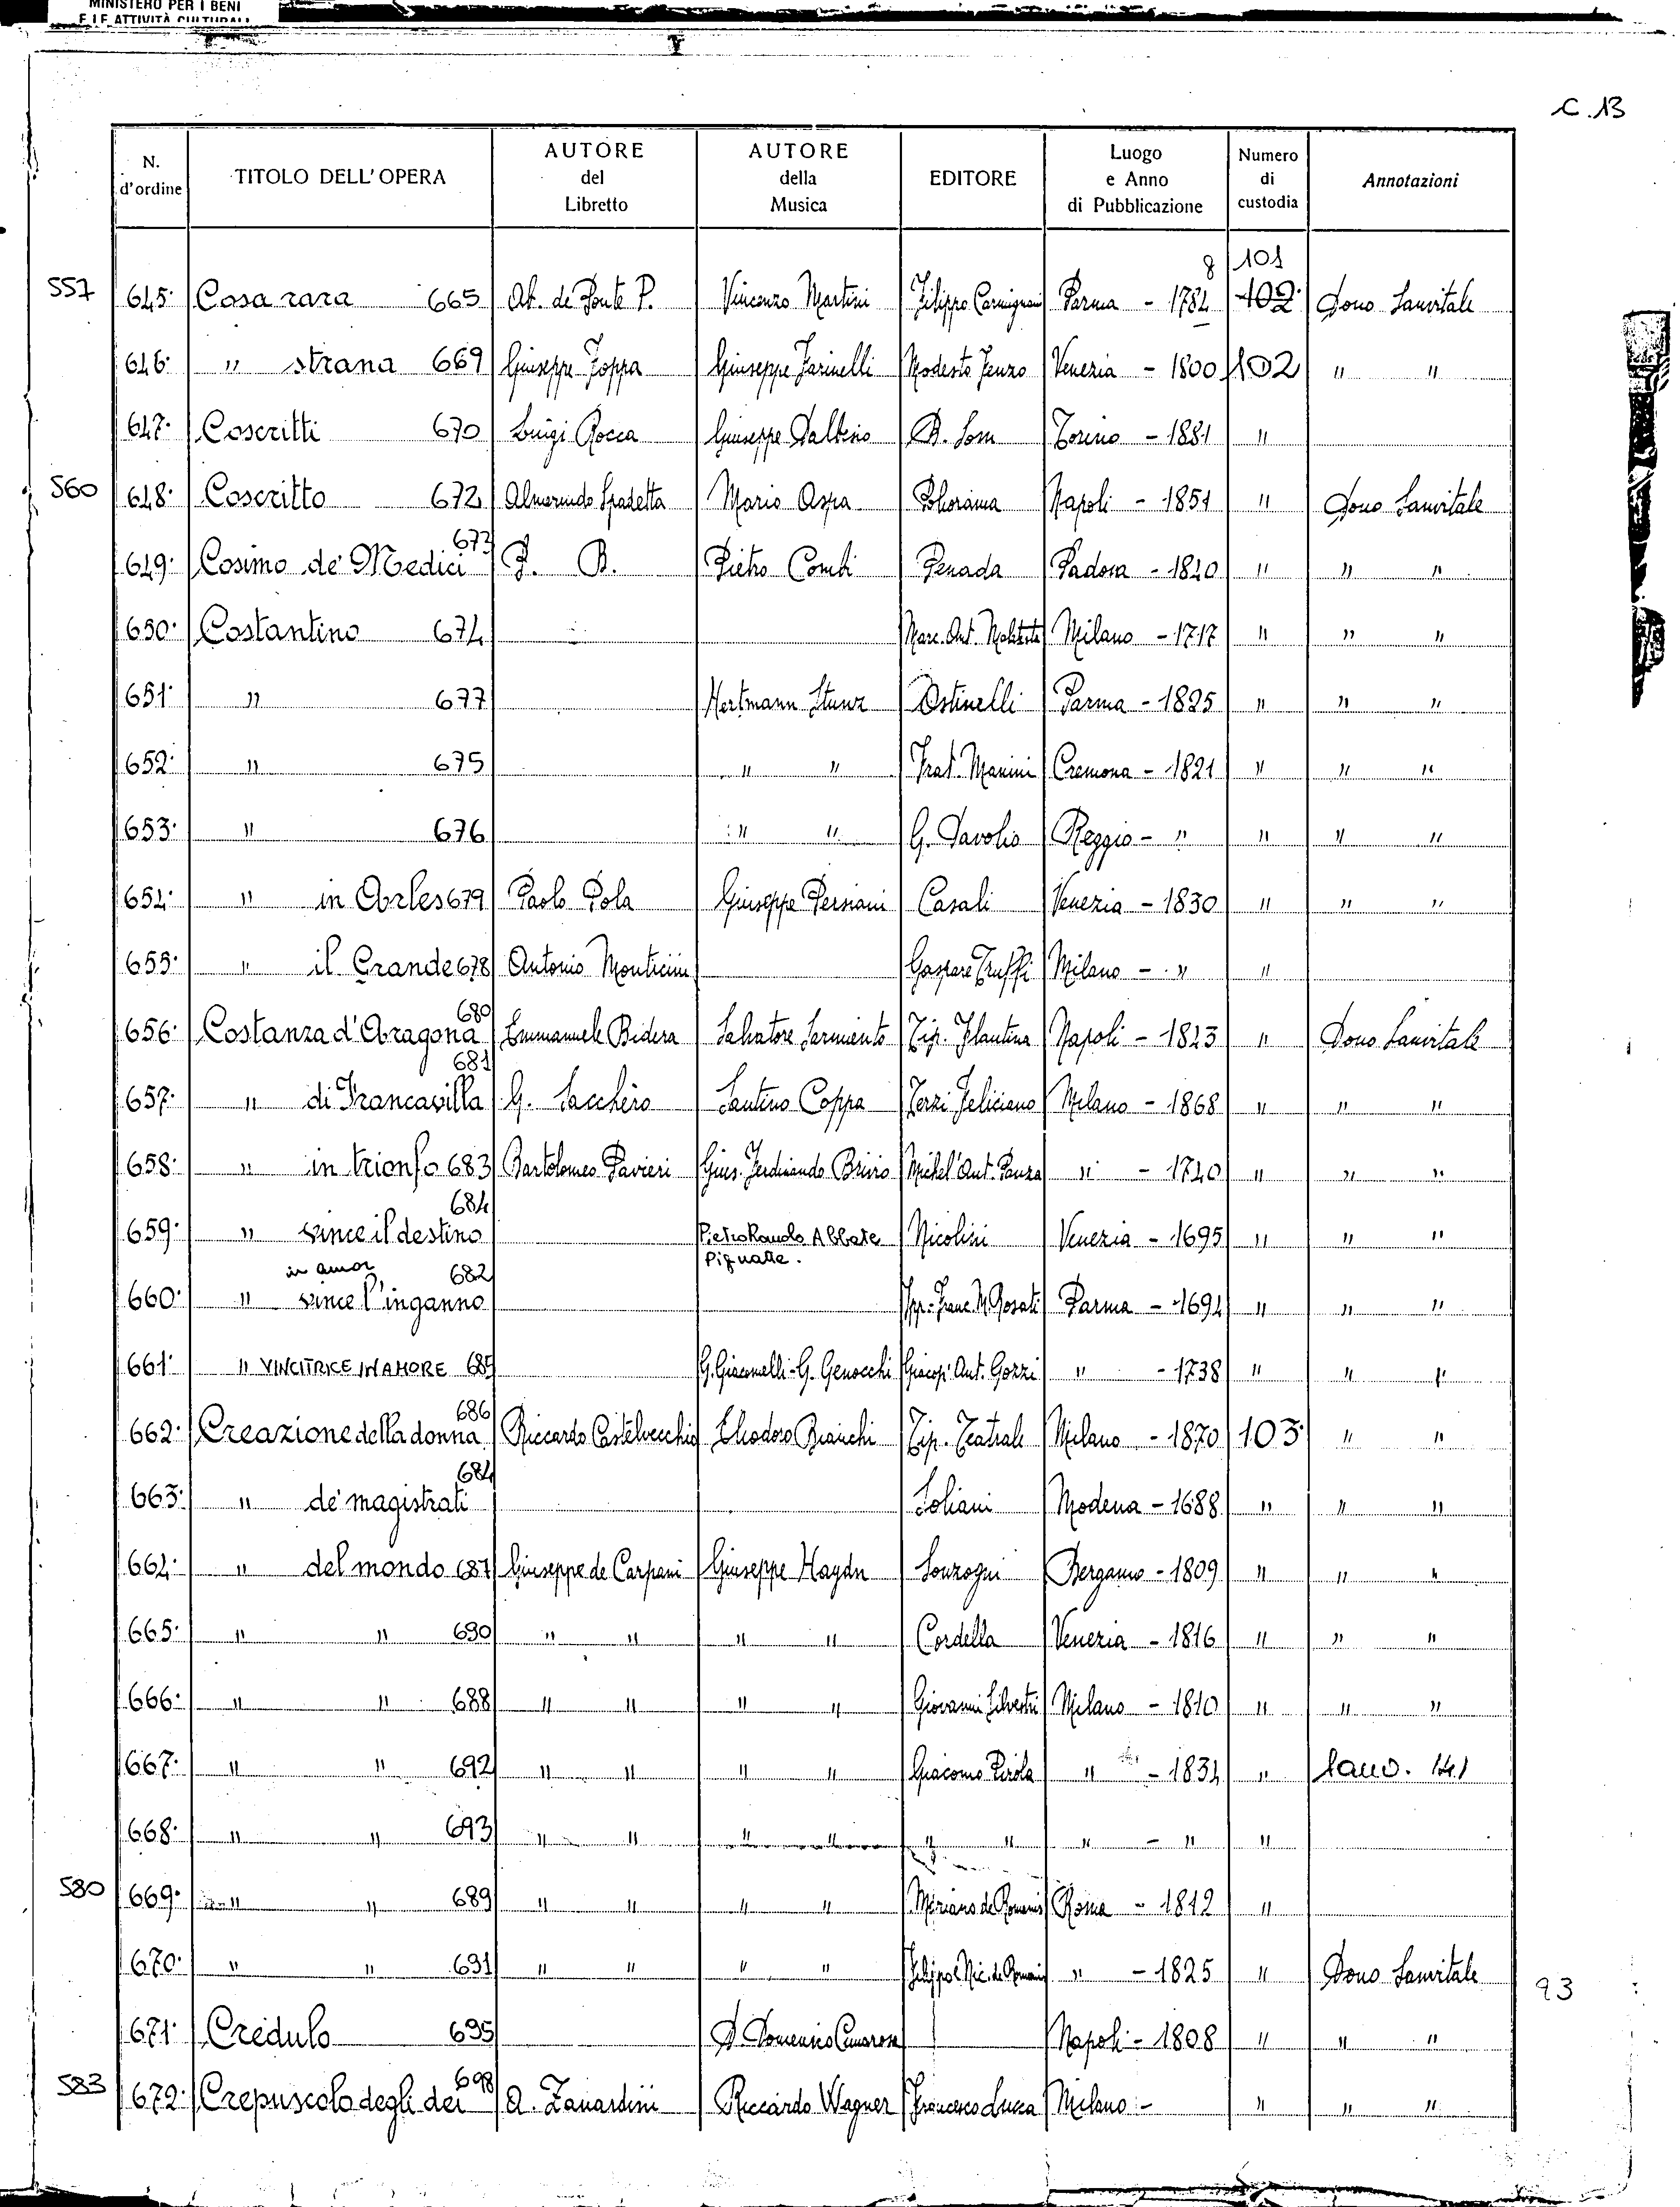 MINISTERO PER I BENI
E LE ATTIVITÀ CULTURALI
C. 13
N. d'ordine TITOLO DELL'OPERA AUTORE del Libretto AUTORE della Musica EDITORE Luogo e Anno di Pubblicazione Numero di custodia Annotazioni
8 101
557 645. Cosa rara 665 Ab. de Ponte P. Vincenzo Martini Filippo Carmignani Parma - 1784 102 Dono Sanvitale
646. " strana 669 Giuseppe Foppa Giuseppe Farinelli Modesto Fenzo Venezia - 1800 102 " "
647. Coscritti 670 Luigi Rocca Giuseppe Dalbesio B. Som Torino - 1881 "
560 648. Coscritto 672 Almerindo Spadetta Mario Aspa Poliorama Napoli - 1851 " Dono Sanvitale
649. Cosimo de' Medici 673 F. B. Pietro Combi Penada Padova - 1840 " " "
650. Costantino 674 Marc. Ant. Milano - 1717 " " "
651. " 677 Hartmann Stunz Ostinelli Parma - 1825 " " "
652. " 675 " " Frat. Manini Cremona - 1821 " " "
653. " 676 " " G. Davolio Reggio - " " " "
654. " in Arles 679 Paolo Pola Giuseppe Persiani Casali Venezia - 1830 " " "
655. " il Grande 678 Antonio Monticini Gaspare Truffi Milano - " "
656. Costanza d'Aragona 680 Emmanuele Bidera Salvatore Sarmiento Tip. Plautina Napoli - 1843 " Dono Sanvitale
657. " di Francavilla 681 G. Sacchèro Santino Coppa Terzi Feliciano Milano - 1868 " " "
658. " in trionfo 683 Bartolomeo Pavieri Gius. Ferdinando Brivio Michel'Ant. Panza " - 1740 " " "
659. " vince il destino 684 Pietro Romolo Abbate Pignatte. Nicolini Venezia - 1695 " " "
in amor
660. " vince l'inganno 682 Ipp. Franc. M. Rosati Parma - 1694 " " "
661. " VINCITRICE IN AMORE 685 G. Giacomelli - G. Genocchi Giacop. Ant. Gozzi " - 1738 " " "
662. Creazione della donna 686 Riccardo Castelvecchio Eliodoro Bianchi Tip. Teatrale Milano - 1870 103 " "
663. " de' magistrati 684 Soliani Modena - 1688 " " "
664. " del mondo 687 Giuseppe de Carpani Giuseppe Haydn Sonzogni Bergamo - 1809 " " "
665. " " 690 " " " " Cordella Venezia - 1816 " " "
666. " " 688 " " " " Giovanni Silvestri Milano - 1810 " " "
667. " " 692 " " " " Giacomo Pirola " - 1834 "
668. " " 693 " " " " " " " - " "
580 669. " " 689 " " " " Mariano de Romanis Roma - 1812 "
670. " " 691 " " " " Filippo e Nic. de Romanis " - 1825 " Dono Sanvitale
93
671. Credulo 695 D. Domenico Cimarosa Napoli - 1808 " " "
583 672. Crepuscolo degli dei 698 A. Zanardini Riccardo Wagner Francesco Lucca Milano - " " "